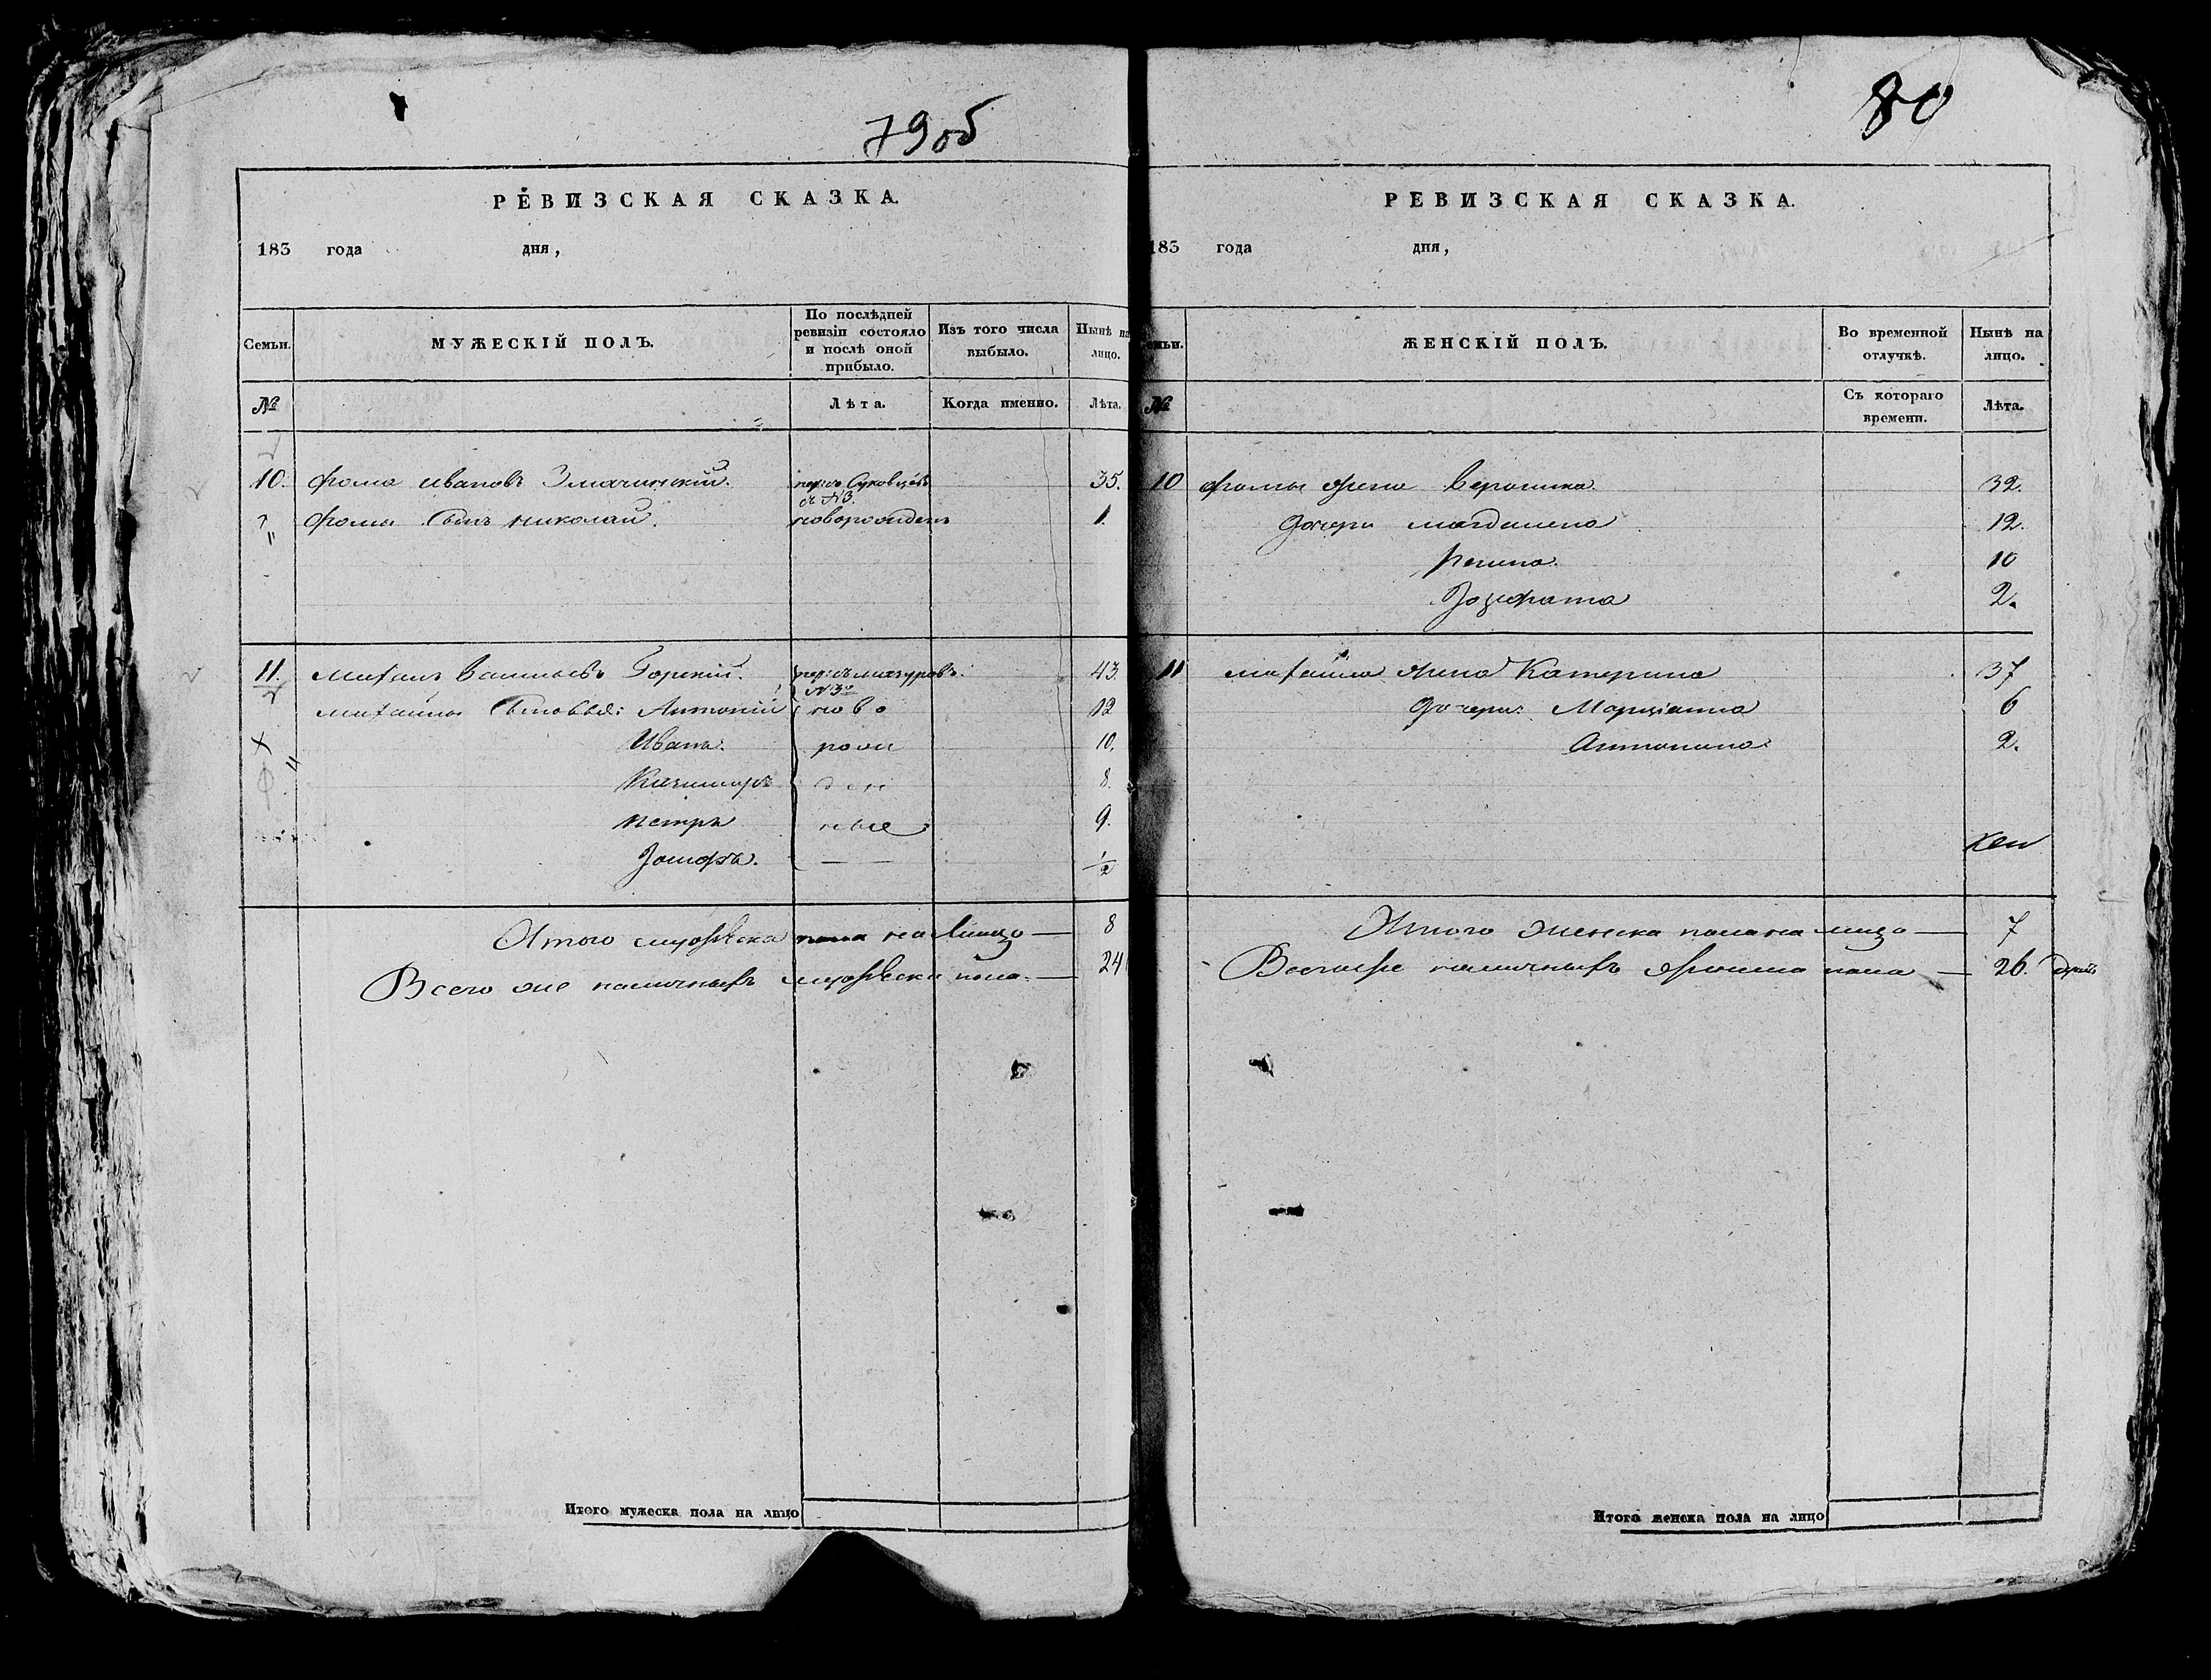 79об
РЕВИЗСКАЯ СКАЗКА.
183 года дня,
Семьи. МУЖЕСКІЙ ПОЛЪ. По послѣдней ревизіи состояло и послѣ оной прибыло. Изъ того числа выбыло. Нынѣ на лицо.
№ Лѣта. Когда именно. Лѣта.
10. Фома Ивановъ 35.
с № 3.
Фомы Сынъ Николай. новорожденъ 1.
11. Михаилъ Васильевъ Горскій. 43.
№ 3º
Михайлы Сыновья: Антоній ново 12
Иванъ. рож 10.
Казимиръ ден 8.
Петръ ные 9.
— — 1/2
Итого мужеска пола на лицо — 8
Всего же наличныхъ мужеска пола. — 24
Итого мужеска пола на лицо
80
РЕВИЗСКАЯ СКАЗКА.
183 года дня,
Семьи. ЖЕНСКІЙ ПОЛЪ. Во временной отлучкѣ. Нынѣ на лицо.
№ Съ котораго времени. Лѣта.
10 Фомы жена Вероника. 32.
Дочери Магдалена 12.
Регина. 10
Іозефата 2.
11 Михайла жена Катерина 37
Дочери: Марціанна 6
Антонина. 2.
Итого женска пола на лицо — 7
Всего же наличныхъ женска пола — 26.
Итого женска пола на лицо